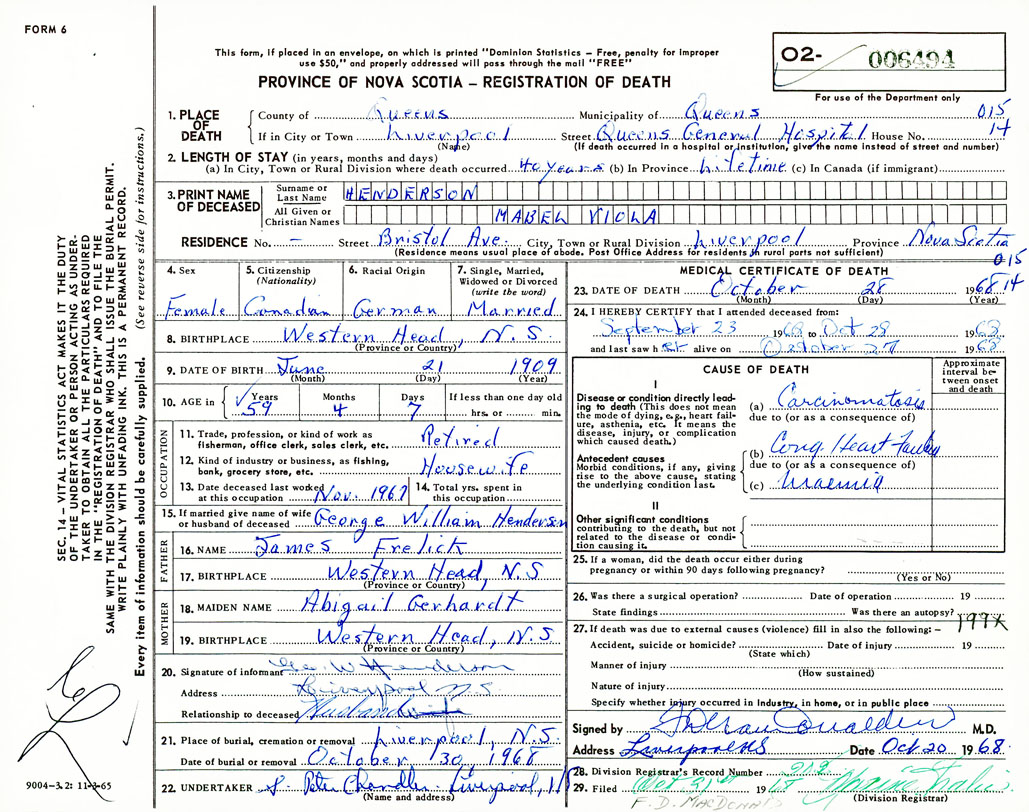 FORM 6
This form, if placed in an envelope, on which is printed "Dominion Statistics – Free, penalty for improper
use $50," and properly addressed will pass through the mail "FREE"
PROVINCE OF NOVA SCOTIA – REGISTRATION OF DEATH
O2- 006494
For use of the Department only
1. PLACE OF DEATH
County of Queens Municipality of Queens 015
If in City or Town Liverpool Street Queens General Hospital House No. 14
(Name) (If death occurred in a hospital or institution, give the name instead of street and number)
2. LENGTH OF STAY (in years, months and days)
(a) In City, Town or Rural Division where death occurred 40 years (b) In Province Lifetime (c) In Canada (if immigrant)
3. PRINT NAME OF DECEASED
Surname or Last Name HENDERSON
All Given or Christian Names MABEL VIOLA
RESIDENCE No. – Street Bristol Ave. City, Town or Rural Division Liverpool Province Nova Scotia
(Residence means usual place of abode. Post Office Address for residents in rural parts not sufficient) 015
4. Sex Female
5. Citizenship (Nationality) Canadian
6. Racial Origin German
7. Single, Married, Widowed or Divorced (write the word) Married
8. BIRTHPLACE Western Head, N.S.
(Province or Country)
9. DATE OF BIRTH June 21 1909
(Month) (Day) (Year)
10. AGE in Years 59 Months 4 Days 7 If less than one day old hrs. or min.
OCCUPATION
11. Trade, profession, or kind of work as fisherman, office clerk, sales clerk, etc. Retired
12. Kind of industry or business, as fishing, bank, grocery store, etc. Housewife
13. Date deceased last worked at this occupation Nov. 1967
14. Total yrs. spent in this occupation
15. If married give name of wife or husband of deceased George William Henderson
FATHER
16. NAME James Frelick
17. BIRTHPLACE Western Head, N.S
(Province or Country)
MOTHER
18. MAIDEN NAME Abigail Gerhardt
19. BIRTHPLACE Western Head, N.S
(Province or Country)
20. Signature of informant Geo. W Henderson
Address Liverpool N.S.
Relationship to deceased Husband
21. Place of burial, cremation or removal Liverpool, N.S.
Date of burial or removal October, 30, 1968
22. UNDERTAKER S. Peter Chandler Liverpool,
(Name and address)
MEDICAL CERTIFICATE OF DEATH
23. DATE OF DEATH October 28 1968 14
(Month) (Day) (Year)
24. I HEREBY CERTIFY that I attended deceased from:
September 23 1968 to Oct 28 1968
and last saw her alive on October 27 1968
CAUSE OF DEATH
Approximate interval between onset and death
I
Disease or condition directly leading to death (This does not mean the mode of dying, e.g., heart failure, asthenia, etc. It means the disease, injury, or complication which caused death.)
(a) Carcinomatosis
due to (or as a consequence of)
Antecedent causes
Morbid conditions, if any, giving rise to the above cause, stating the underlying condition last.
(b) Cong. Heart Failure
due to (or as a consequence of)
(c) Uraemia
II
Other significant conditions contributing to the death, but not related to the disease or condition causing it.
25. If a woman, did the death occur either during pregnancy or within 90 days following pregnancy?
(Yes or No)
26. Was there a surgical operation? Date of operation 19
State findings Was there an autopsy?
199X
27. If death was due to external causes (violence) fill in also the following:–
Accident, suicide or homicide? Date of injury 19
(State which)
Manner of injury
(How sustained)
Nature of injury
Specify whether injury occurred in Industry, in home, or in public place
Signed by M.D.
Address Liverpool NS Date Oct 20 1968.
28. Division Registrar's Record Number 212
29. Filed Oct 31 1968
(Division Registrar)
F. D. MACDONALD
SEC. 14 – VITAL STATISTICS ACT MAKES IT THE DUTY
OF THE UNDERTAKER OR PERSON ACTING AS UNDER-
TAKER TO OBTAIN ALL THE PARTICULARS REQUIRED
IN THE "REGISTRATION OF DEATH" AND TO FILE THE
SAME WITH THE DIVISION REGISTRAR WHO SHALL ISSUE THE BURIAL PERMIT.
WRITE PLAINLY WITH UNFADING INK. THIS IS A PERMANENT RECORD.
Every item of information should be carefully supplied. (See reverse side for instructions.)
9004-3.2: 11-3-65